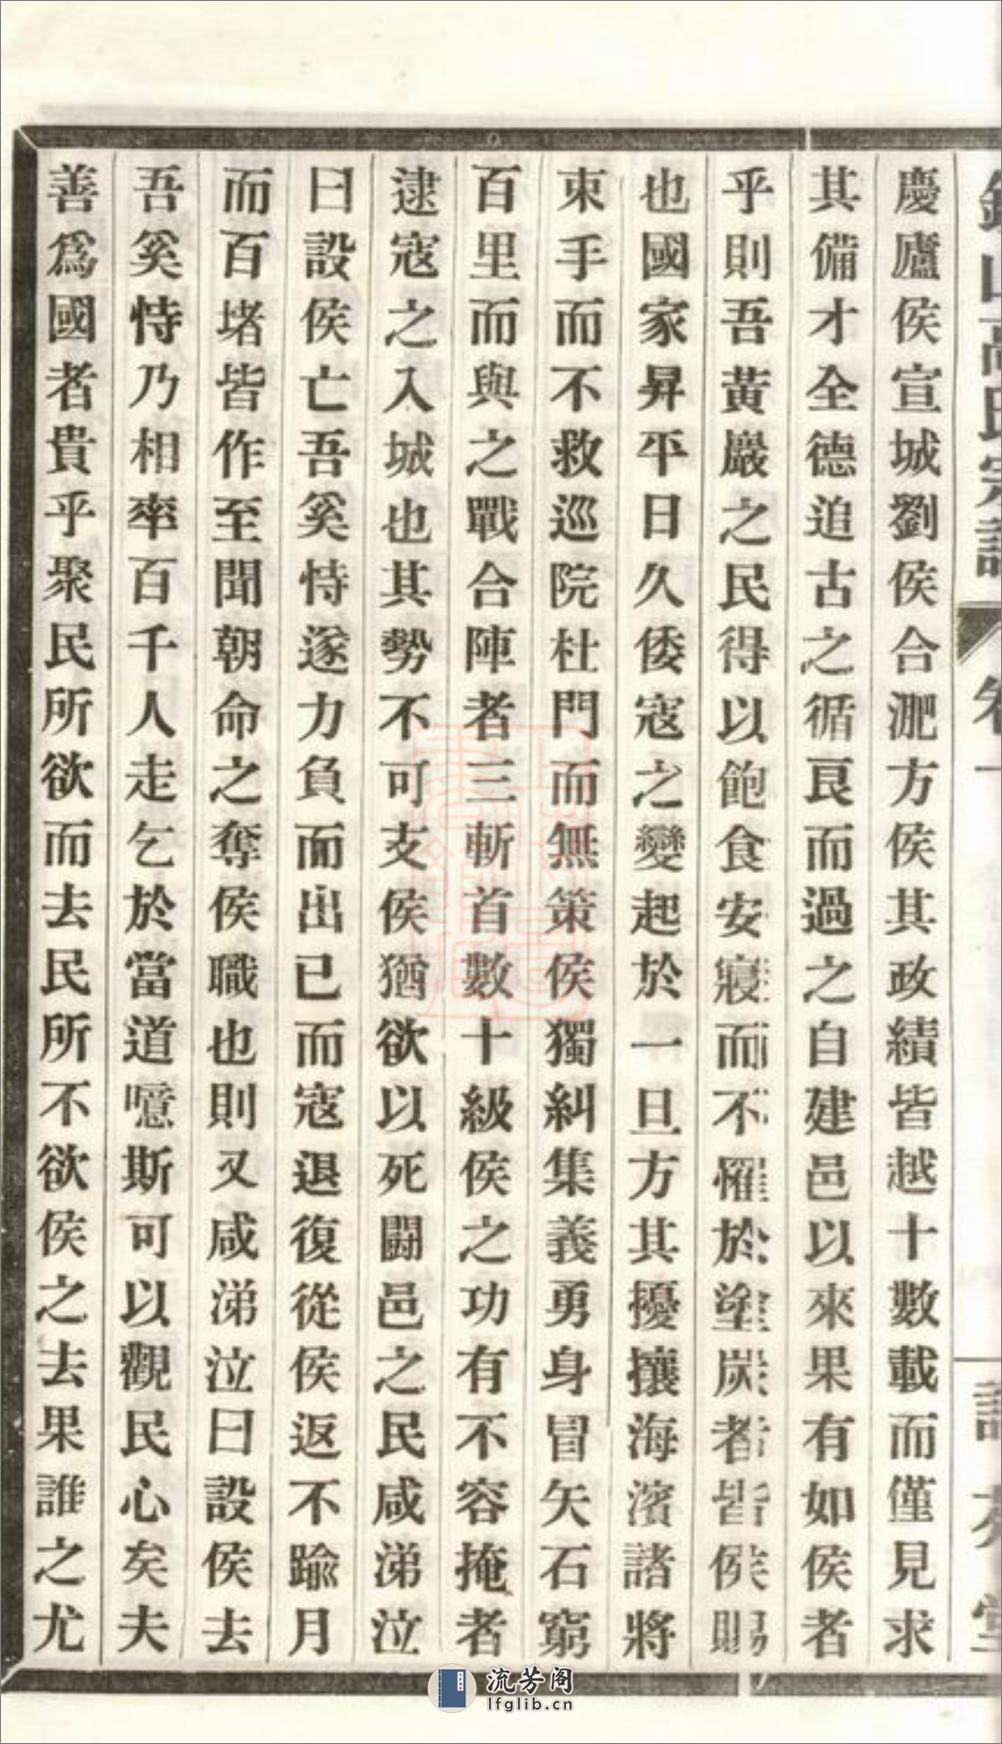 慶廬侯宣城劉侯合淝方侯其政績皆越十數載而僅見求
其備才全德追古之循良而過之自建邑以來果有如侯者
乎則吾黃巖之民得以飽食安寢而不罹於塗炭者皆侯賜
也國家昇平日久倭寇之變起於一旦方其擾攘海濱諸將
束手而不救巡院杜門而無策侯獨糾集義勇身冒矢石窮
百里而與之戰合陣者三斬首數十級侯之功有不容掩者
逮寇之入城也其勢不可支侯猶欲以死鬭邑之民咸涕泣
曰設侯亡吾奚恃遂力負而出已而寇退復從侯返不踰月
而百堵皆作至聞朝命之奪侯職也則又咸涕泣曰設侯去
吾奚恃乃相率百千人走乞於當道噫斯可以觀民心矣夫
善爲國者貴乎聚民所欲而去民所不欲侯之去果誰之尤
流芳阁
lfglib.cn